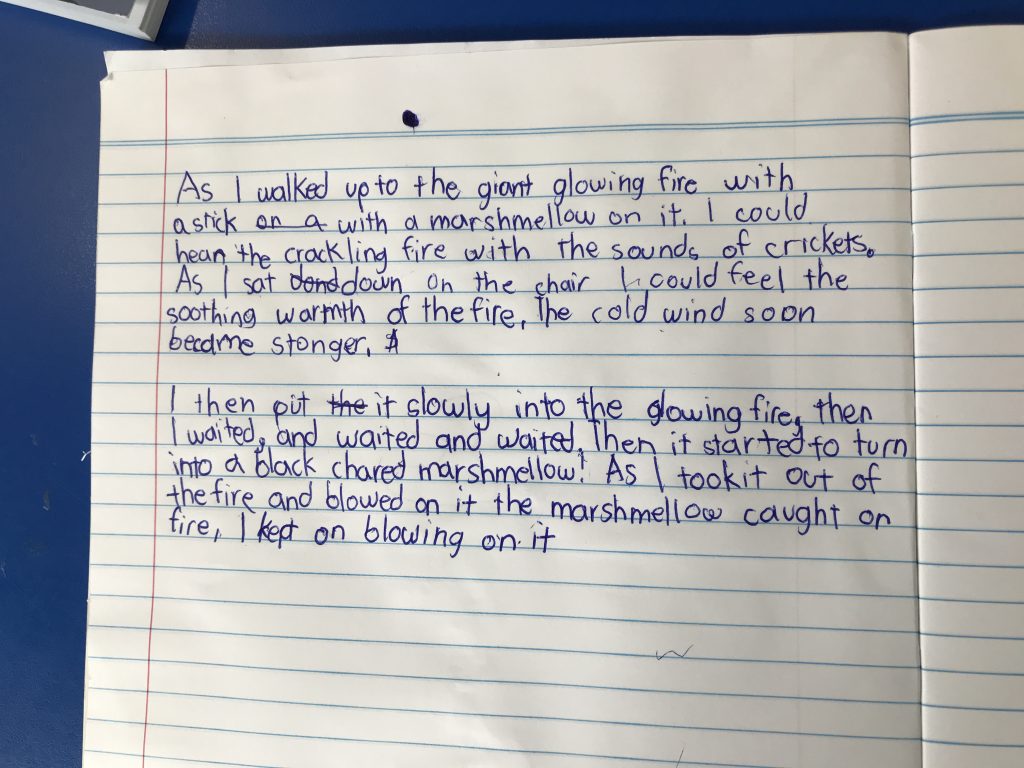 As I walked up to the giant glowing fire with
a stick on a with a marshmellow on it. I could
hear the crackling fire with the sounds of crickets.
As I sat down on the chair I could feel the
soothing warmth of the fire, The cold wind soon
became stonger.
I then put the it slowly into the glowing fire, then
I waited, and waited and waited, Then it started to turn
into a black chared marshmellow! As I took it out of
the fire and blowed on it the marshmellow caught on
fire, I kept on blowing on it